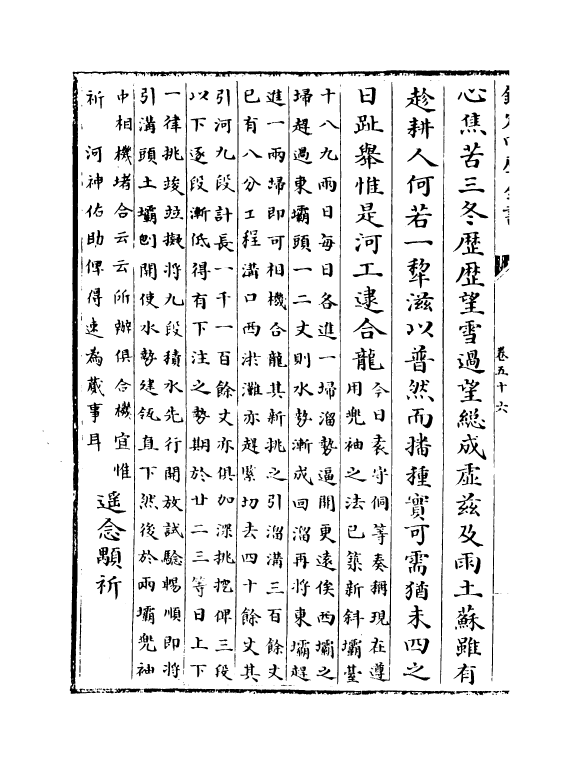 卷五十六
心焦苦三冬歴歴望雪過望総成虛兹及雨土蘇雖有
趁耕人何若一犂滋以普然而播種實可需猶未四之
日趾舉惟是河工逮合龍
今日袁守侗等奏稱現在遵
用兜袖之法已築新斜壩臺
十八九兩日每日各進一埽溜勢逼開更遠俟西壩之
埽趕過東壩頭一二丈則水勢漸成回溜再將東壩趕
進一兩埽即可相機合龍其新挑之引溜溝三百餘丈
已有八分工程溝口西洪灘亦趕緊切去四十餘丈其
引河九段計長一千一百餘丈亦俱加深挑挖俾三段
以下逐段漸低得有下注之勢期於廿二三等日上下
一律挑竣並擬將九段積水先行開放試驗暢順即將
引溝頭土壩刨開使水勢建瓴直下然後於兩壩兜袖
中相機堵合云云所辦俱合機宜惟
祈　河神佑助俾得速為蕆事耳
遥念顒祈